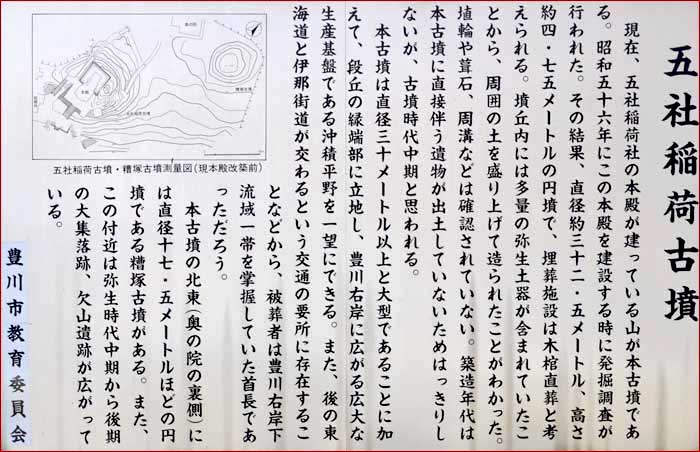 五社稲荷古墳
現在、五社稲荷社の本殿が建っている山が本古墳であ
る。昭和五十六年にこの本殿を建設する時に発掘調査が
行われた。その結果、直径約三十二・五メートル、高さ
約四・七五メートルの円墳で、埋葬施設は木棺直葬と考
えられる。墳丘内には多量の弥生土器が含まれていたこ
とから、周囲の土を盛り上げて造られたことがわかった。
埴輪や葺石、周溝などは確認されていない。築造年代は
本古墳に直接伴う遺物が出土していないためはっきりし
ないが、古墳時代中期と思われる。
本古墳は直径三十メートル以上と大型であることに加
えて、段丘の縁端部に立地し、豊川右岸に広がる広大な
生産基盤である沖積平野を一望にできる。また、後の東
海道と伊那街道が交わるという交通の要所に存在するこ
となどから、被葬者は豊川右岸下
流域一帯を掌握していた首長であ
っただろう。
本古墳の北東(奥の院の裏側)に
は直径十七・五メートルほどの円
墳である糟塚古墳がある。また、
この付近は弥生時代中期から後期
の大集落跡、欠山遺跡が広がって
いる。
五社稲荷古墳・糟塚古墳測量図(現本殿改築前)
豊川市教育委員会